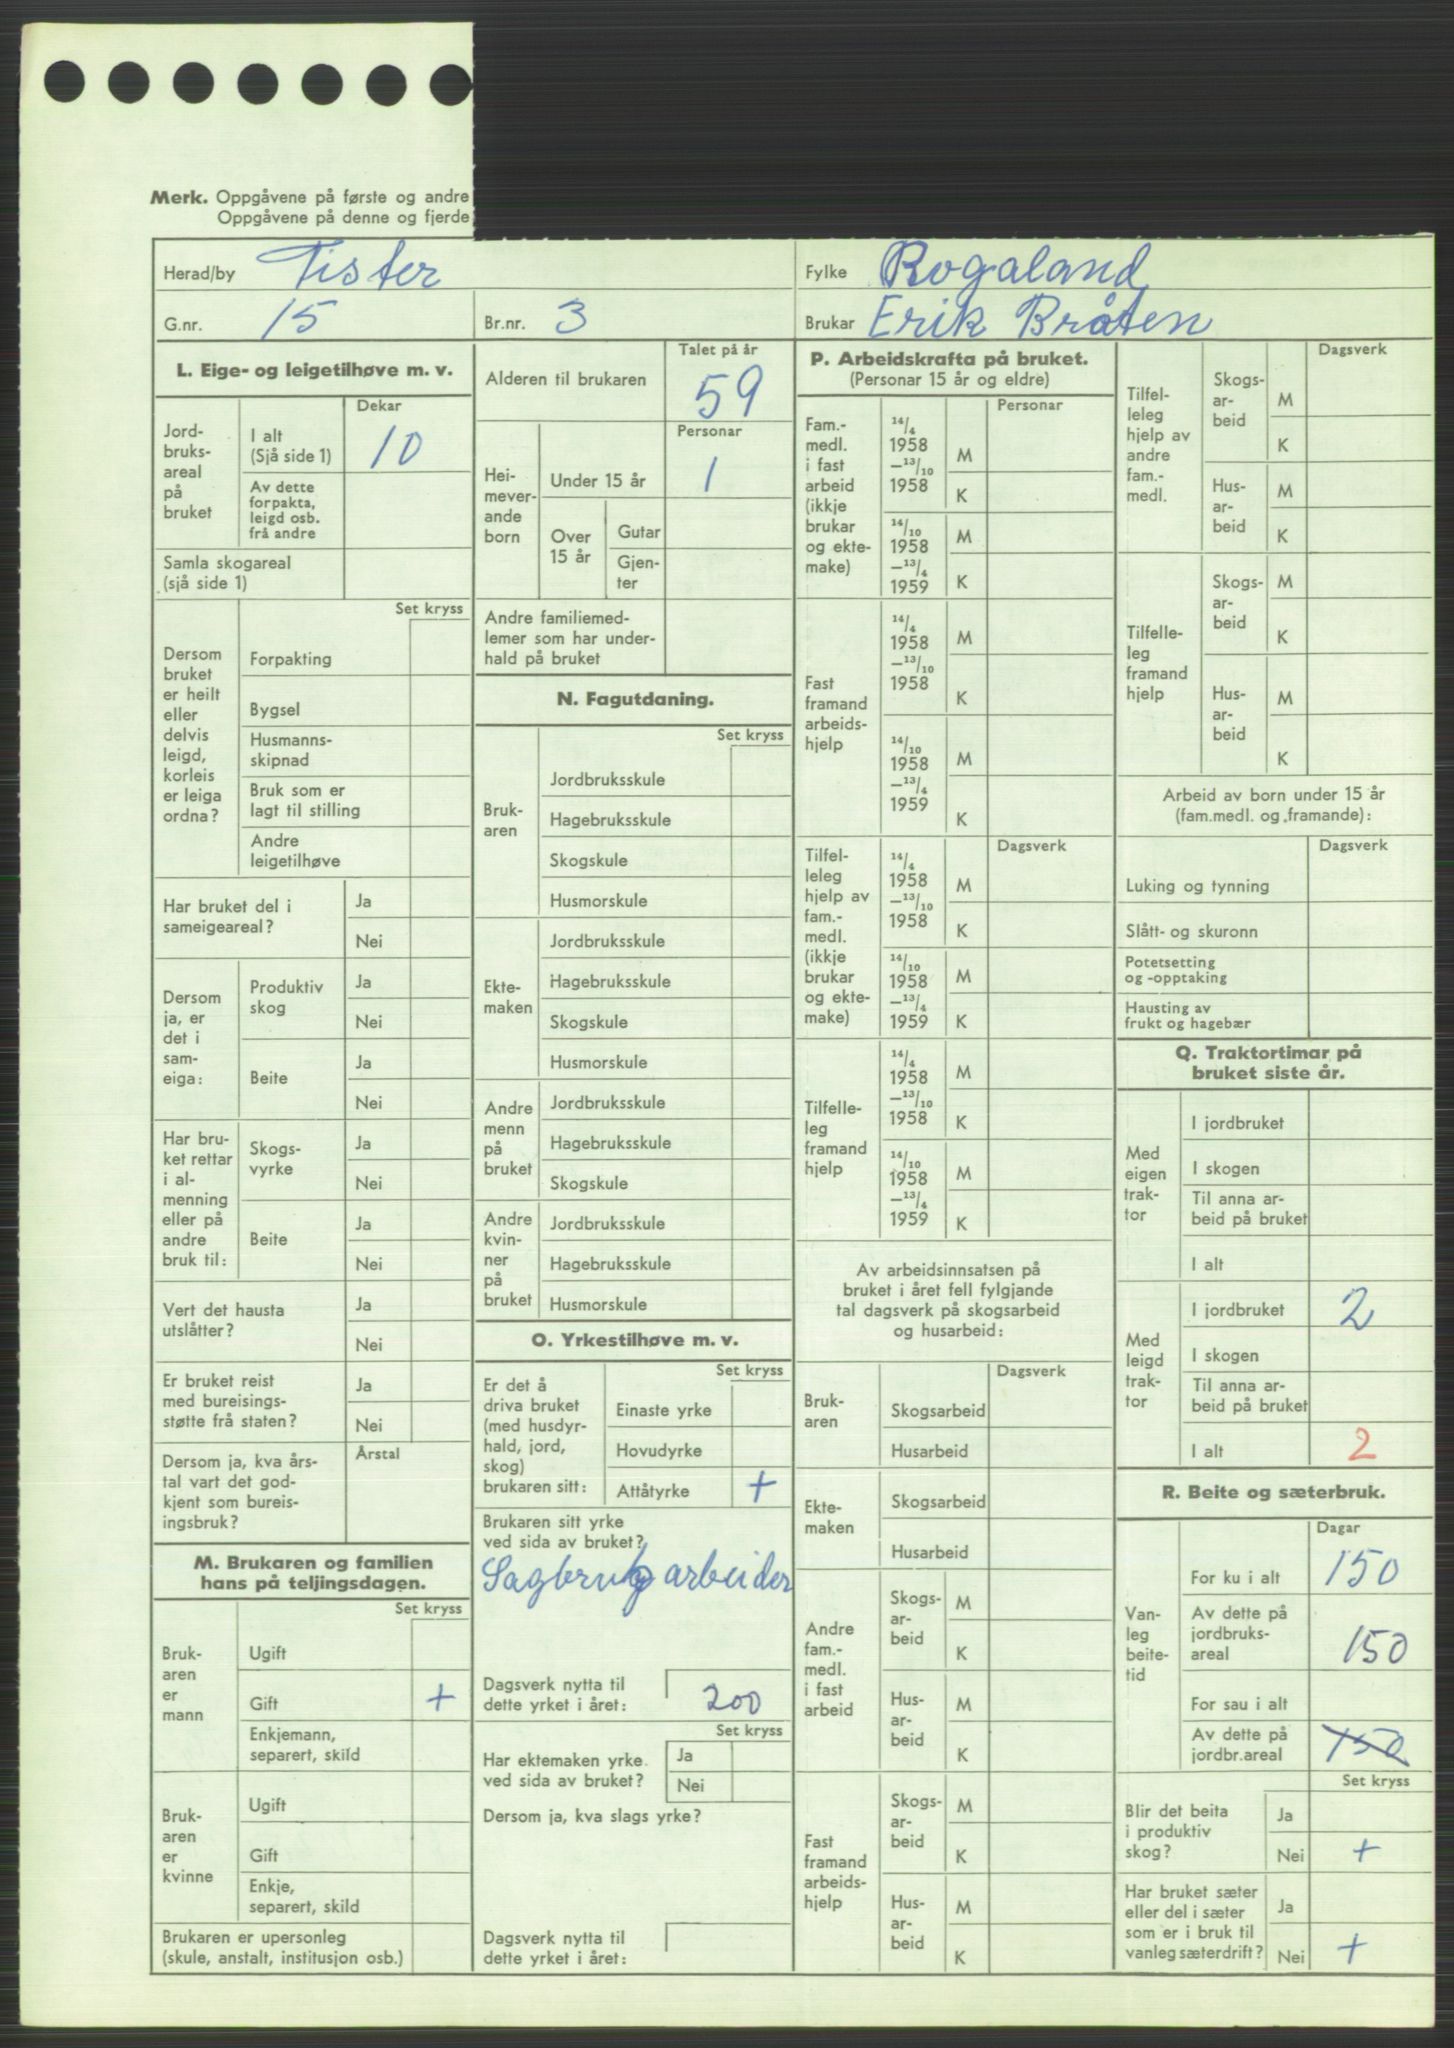 Merk. Oppgåvene på første og andre
Oppgåvene på denne og fjerde
Herad/by Tister Fylke Rogaland
G.nr. 15 Br.nr. 3 Brukar Erik Bråten
L. Eige- og leigetilhøve m. v.
Dekar
Jord-
bruks-
areal
på
bruket
I alt
(Sjå side 1) 10
Av dette
forpakta,
leigd osb.
frå andre
Samla skogareal
(sjå side 1)
Set kryss
Dersom
bruket
er heilt
eller
delvis
leigd,
korleis
er leiga
ordna?
Forpakting
Bygsel
Husmanns-
skipnad
Bruk som er
lagt til stilling
Andre
leigetilhøve
Har bruket del i
sameigeareal?
Ja
Nei
Dersom
ja, er
det i
sam-
eiga:
Produktiv
skog
Ja
Nei
Beite
Ja
Nei
Har bru-
ket rettar
i al-
menning
eller på
andre
bruk til:
Skogs-
vyrke
Ja
Nei
Beite
Ja
Nei
Vert det hausta
utslåtter?
Ja
Nei
Er bruket reist
med bureisings-
støtte frå staten?
Ja
Nei
Dersom ja, kva års-
tal vart det god-
kjent som bureis-
ingsbruk?
Årstal
M. Brukaren og familien
hans på teljingsdagen.
Set kryss
Bruk-
aren
er
mann
Ugift
Gift +
Enkjemann,
separert, skild
Bruk-
aren
er
kvinne
Ugift
Gift
Enkje,
separert, skild
Brukaren er upersonleg
(skule, anstalt, institusjon osb.)
Talet på år
Alderen til brukaren 59
Personar
Hei-
mever-
ande
born
Under 15 år 1
Over
15 år
Gutar
Gjen-
ter
Andre familiemed-
lemer som har under-
hald på bruket
N. Fagutdaning.
Set kryss
Bruk-
aren
Jordbruksskule
Hagebruksskule
Skogskule
Husmorskule
Ekte-
maken
Jordbruksskule
Hagebruksskule
Skogskule
Husmorskule
Andre
menn
på
bruket
Jordbruksskule
Hagebruksskule
Skogskule
Andre
kvin-
ner
på
bruket
Jordbruksskule
Hagebruksskule
Husmorskule
O. Yrkestilhøve m. v.
Set kryss
Er det å
driva bruket
(med husdyr-
hald, jord,
skog)
brukaren sitt:
Einaste yrke
Hovudyrke
Attåtyrke +
Brukaren sitt yrke
ved sida av bruket?
Sagbruksarbeider
Dagsverk nytta til
dette yrket i året: 200
Set kryss
Har ektemaken yrke
ved sida av bruket?
Ja
Nei
Dersom ja, kva slags yrke?
Dagsverk nytta til
dette yrket i året:
P. Arbeidskrafta på bruket.
(Personar 15 år og eldre)
Personar
Fam.-
medl.
i fast
arbeid
(ikkje
brukar
og ekte-
make)
14/4
1958
—13/10
1958
M
K
14/10
1958
—13/4
1959
M
K
Fast
framand
arbeids-
hjelp
14/4
1958
—13/10
1958
M
K
14/10
1958
—13/4
1959
M
K
Dagsverk
Tilfel-
leleg
hjelp av
fam.-
medl.
(ikkje
brukar
og ekte-
make)
14/4
1958
—13/10
1958
M
K
14/10
1958
—13/4
1959
M
K
Tilfelle-
leg
framand
hjelp
14/4
1958
—13/10
1958
M
K
14/10
1958
—13/4
1959
M
K
Av arbeidsinnsatsen på
bruket i året fell fylgjande
tal dagsverk på skogsarbeid
og husarbeid:
Dagsverk
Bruk-
aren
Skogsarbeid
Husarbeid
Ekte-
maken
Skogsarbeid
Husarbeid
Andre
fam.-
medl.
i fast
arbeid
Skogs-
ar-
beid
M
K
Hus-
ar-
beid
M
K
Fast
framand
arbeids-
hjelp
Skogs-
ar-
beid
M
K
Hus-
ar-
beid
M
K
Dagsverk
Tilfel-
leleg
hjelp av
andre
fam.-
medl.
Skogs-
ar-
beid
M
K
Hus-
ar-
beid
M
K
Tilfelle-
leg
framand
hjelp
Skogs-
ar-
beid
M
K
Hus-
ar-
beid
M
K
Arbeid av born under 15 år
(fam.medl. og framande):
Dagsverk
Luking og tynning
Slått- og skuronn
Potetsetting
og -opptaking
Hausting av
frukt og hagebær
Q. Traktortimar på
bruket siste år.
Med
eigen
trak-
tor
I jordbruket
I skogen
Til anna ar-
beid på bruket
I alt
Med
leigd
trak-
tor
I jordbruket 2
I skogen
Til anna ar-
beid på bruket
I alt 2
R. Beite og sæterbruk.
Dagar
Van-
leg
beite-
tid
For ku i alt 150
Av dette på
jordbruks-
areal 150
For sau i alt
Av dette på
jordbr.areal 150
Set kryss
Blir det beita
i produktiv
skog?
Ja
Nei +
Har bruket sæter
eller del i sæter
som er i bruk til
vanleg sæterdrift?
Ja
Nei +